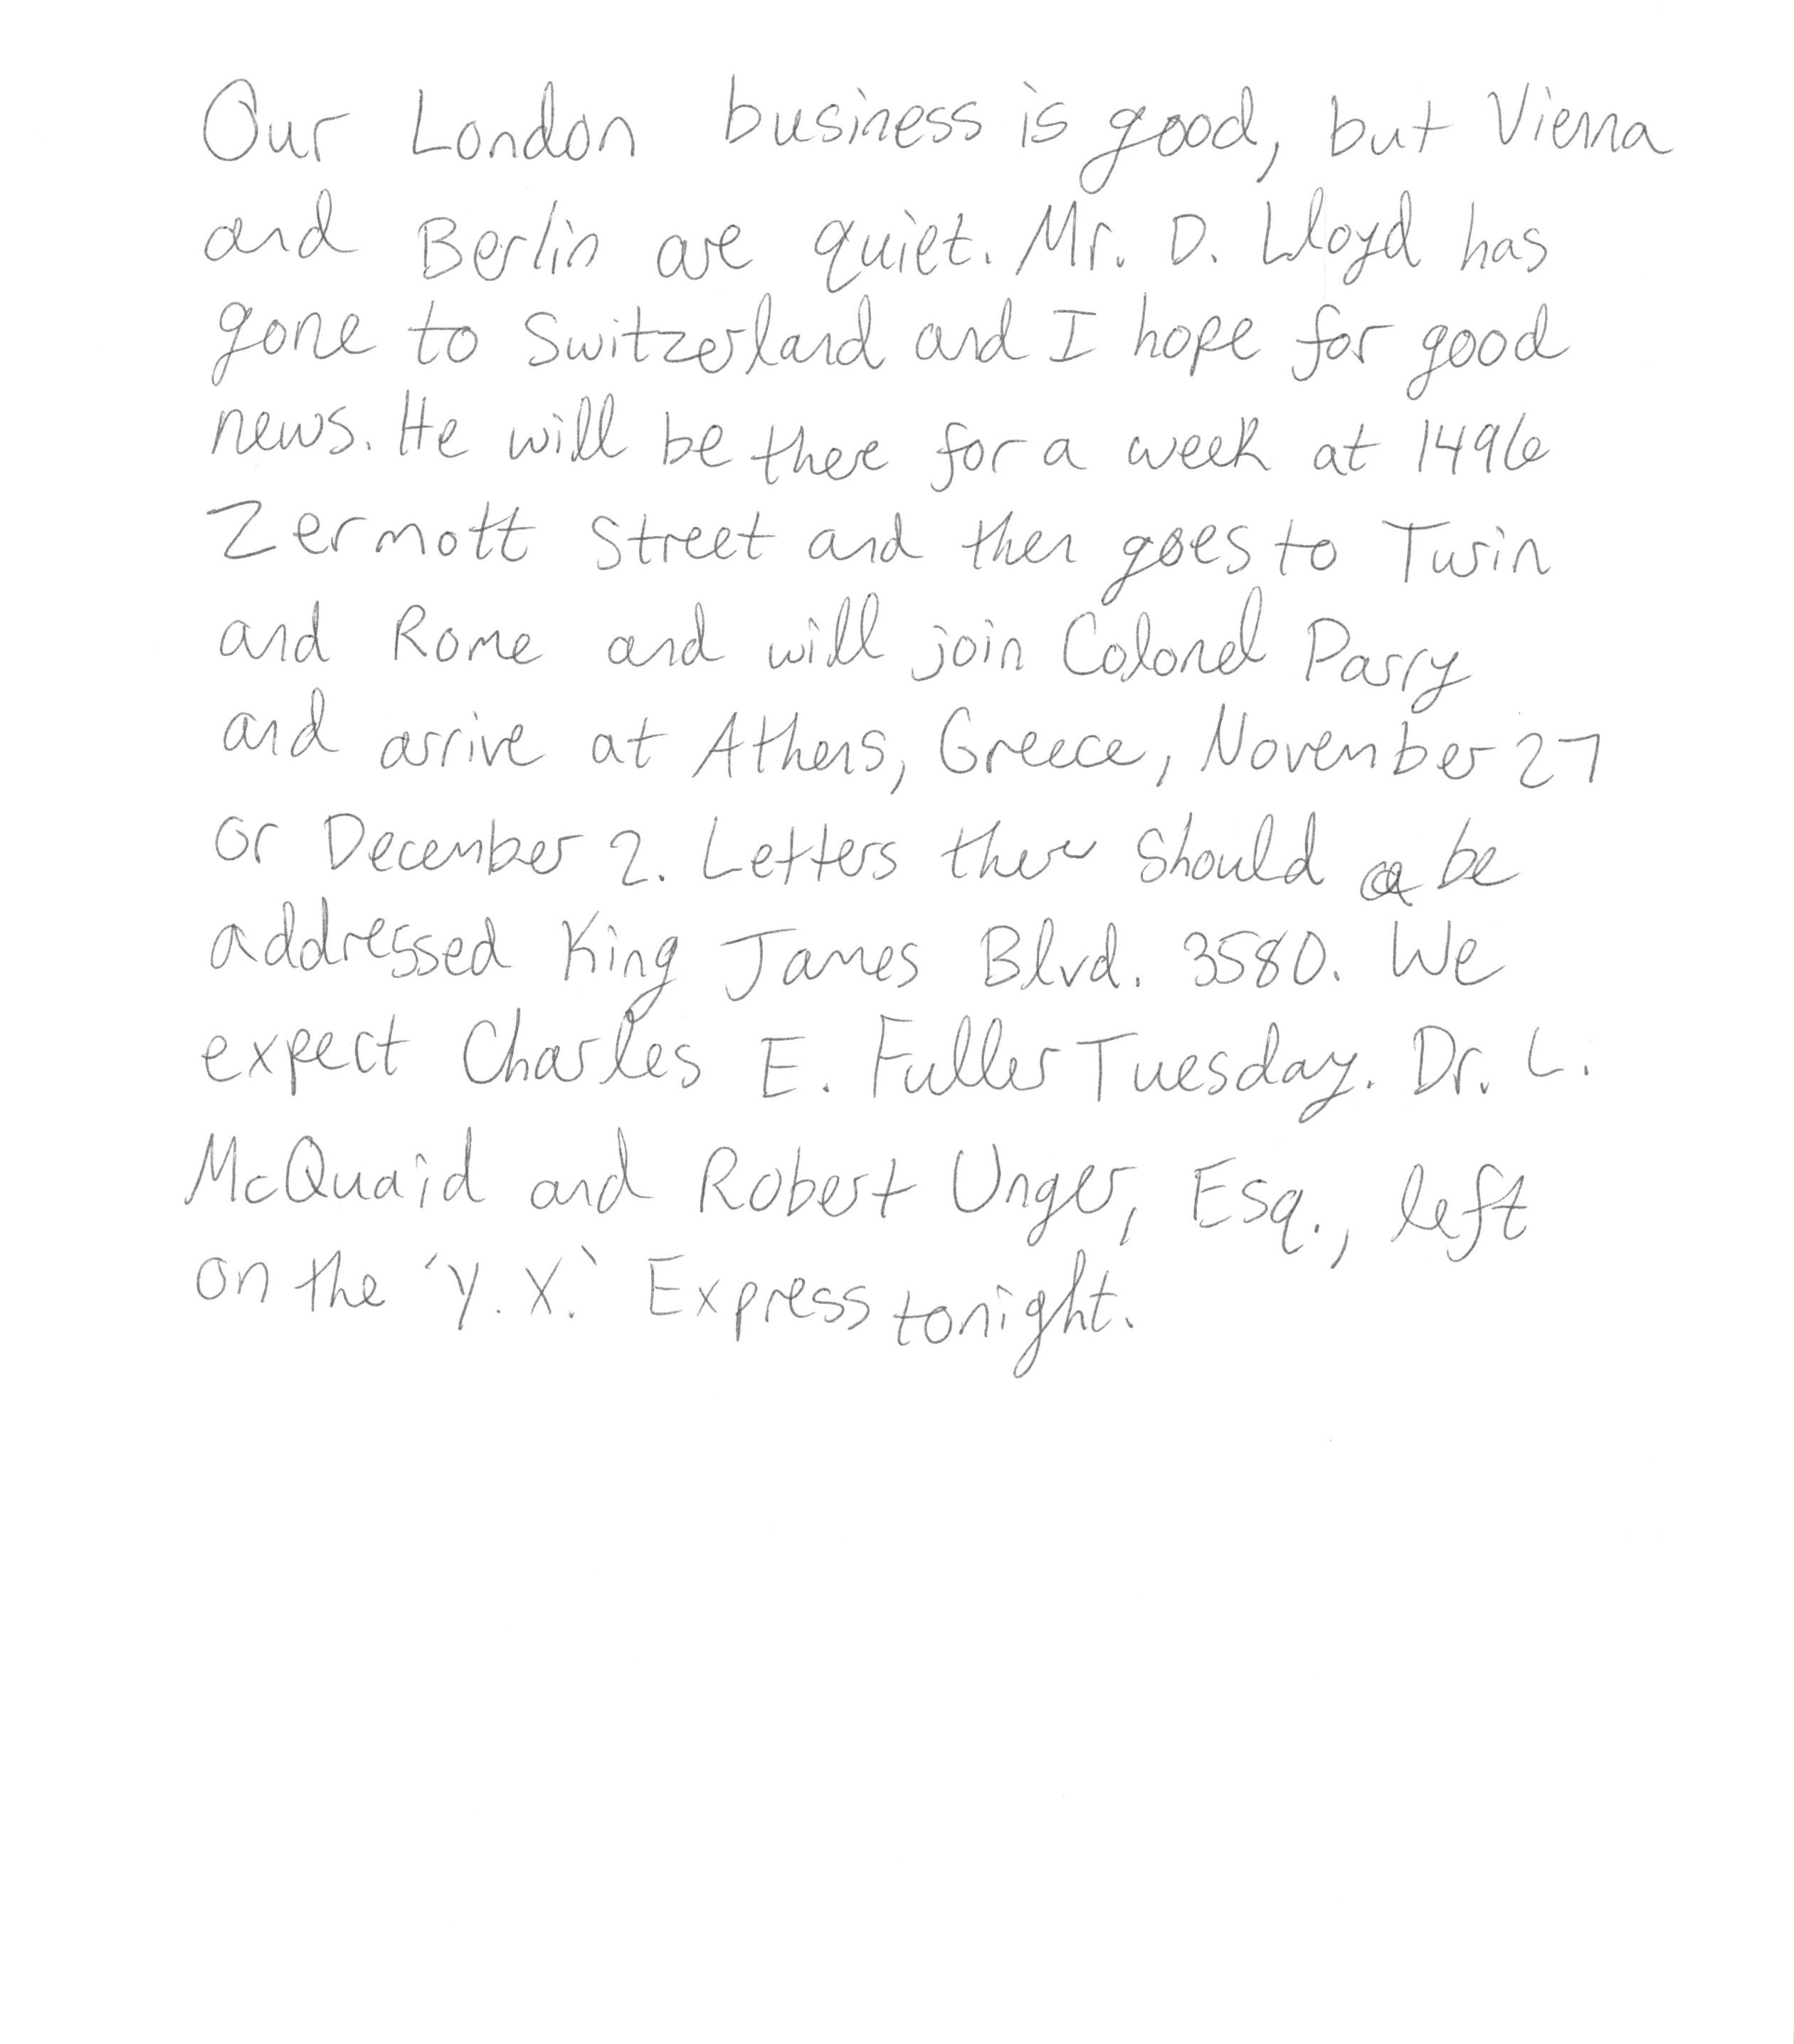 Our London business is good, but Vienna
and Berlin are quiet. Mr. D. Lloyd has
gone to Switzerland and I hope for good
news. He will be there for a week at 1496
Zermott Street and then goes to Turin
and Rome and will join Colonel Parry
and arrive at Athens, Greece, November 27
or December 2. Letters there should be
addressed King James Blvd. 3580. We
expect Charles E. Fuller Tuesday. Dr. L.
McQuaid and Robert Unger, Esq., left
on the 'Y.X.' Express tonight.